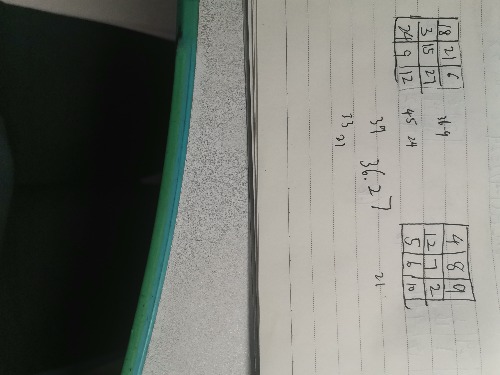 18 21 6 4 8 9
3 15 27 12 7 2
24 9 12 5 6 10
45 24
39 36.27 21
21